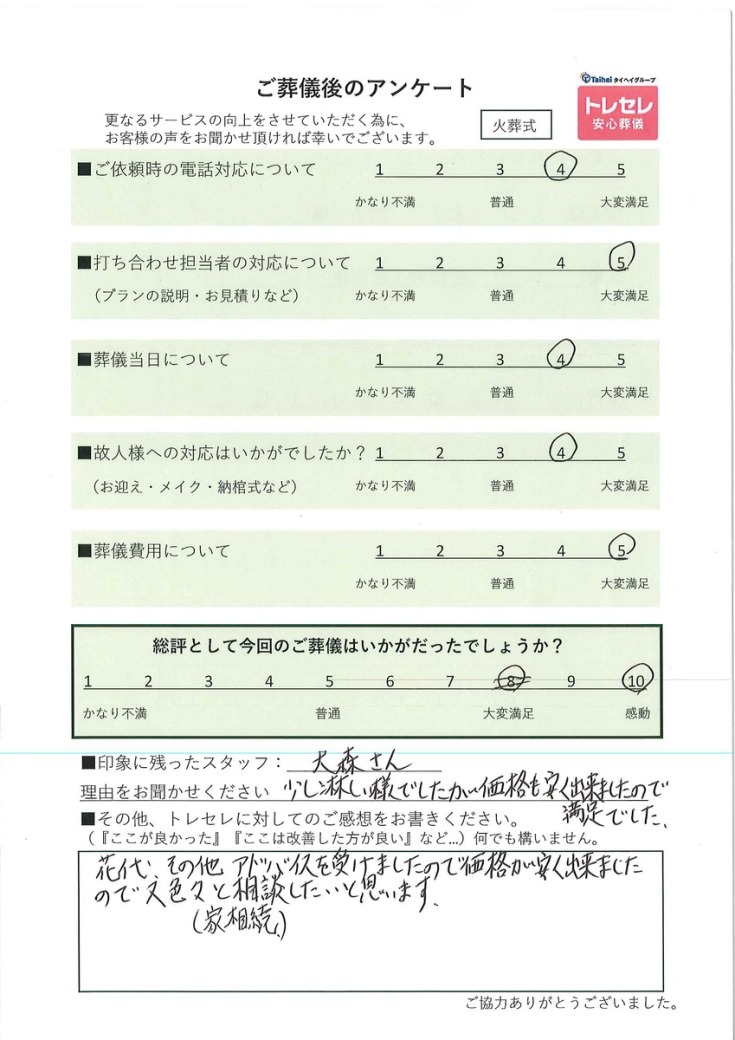 ご葬儀後のアンケート
Taihei タイヘイグループ
トレセレ
安心葬儀
更なるサービスの向上をさせていただく為に、
お客様の声をお聞かせ頂ければ幸いでございます。
火葬式
■ご依頼時の電話対応について 1 2 3 4 5
かなり不満 普通 大変満足
■打ち合わせ担当者の対応について 1 2 3 4 5
（プランの説明・お見積りなど） かなり不満 普通 大変満足
■葬儀当日について 1 2 3 4 5
かなり不満 普通 大変満足
■故人様への対応はいかがでしたか？ 1 2 3 4 5
（お迎え・メイク・納棺式など） かなり不満 普通 大変満足
■葬儀費用について 1 2 3 4 5
かなり不満 普通 大変満足
総評として今回のご葬儀はいかがだったでしょうか？
1 2 3 4 5 6 7 8 9 10
かなり不満 普通 大変満足 感動
■印象に残ったスタッフ： 大森さん
理由をお聞かせください 少し淋しい様でしたが価格も安く出来ましたので
満足でした、
■その他、トレセレに対してのご感想をお書きください。
（『ここが良かった』『ここは改善した方が良い』など…）何でも構いません。
花代、その他 アドバイスを受けましたので価格が安く出来ました
ので又色々と相談したいと思います、
（家相続、）
ご協力ありがとうございました。